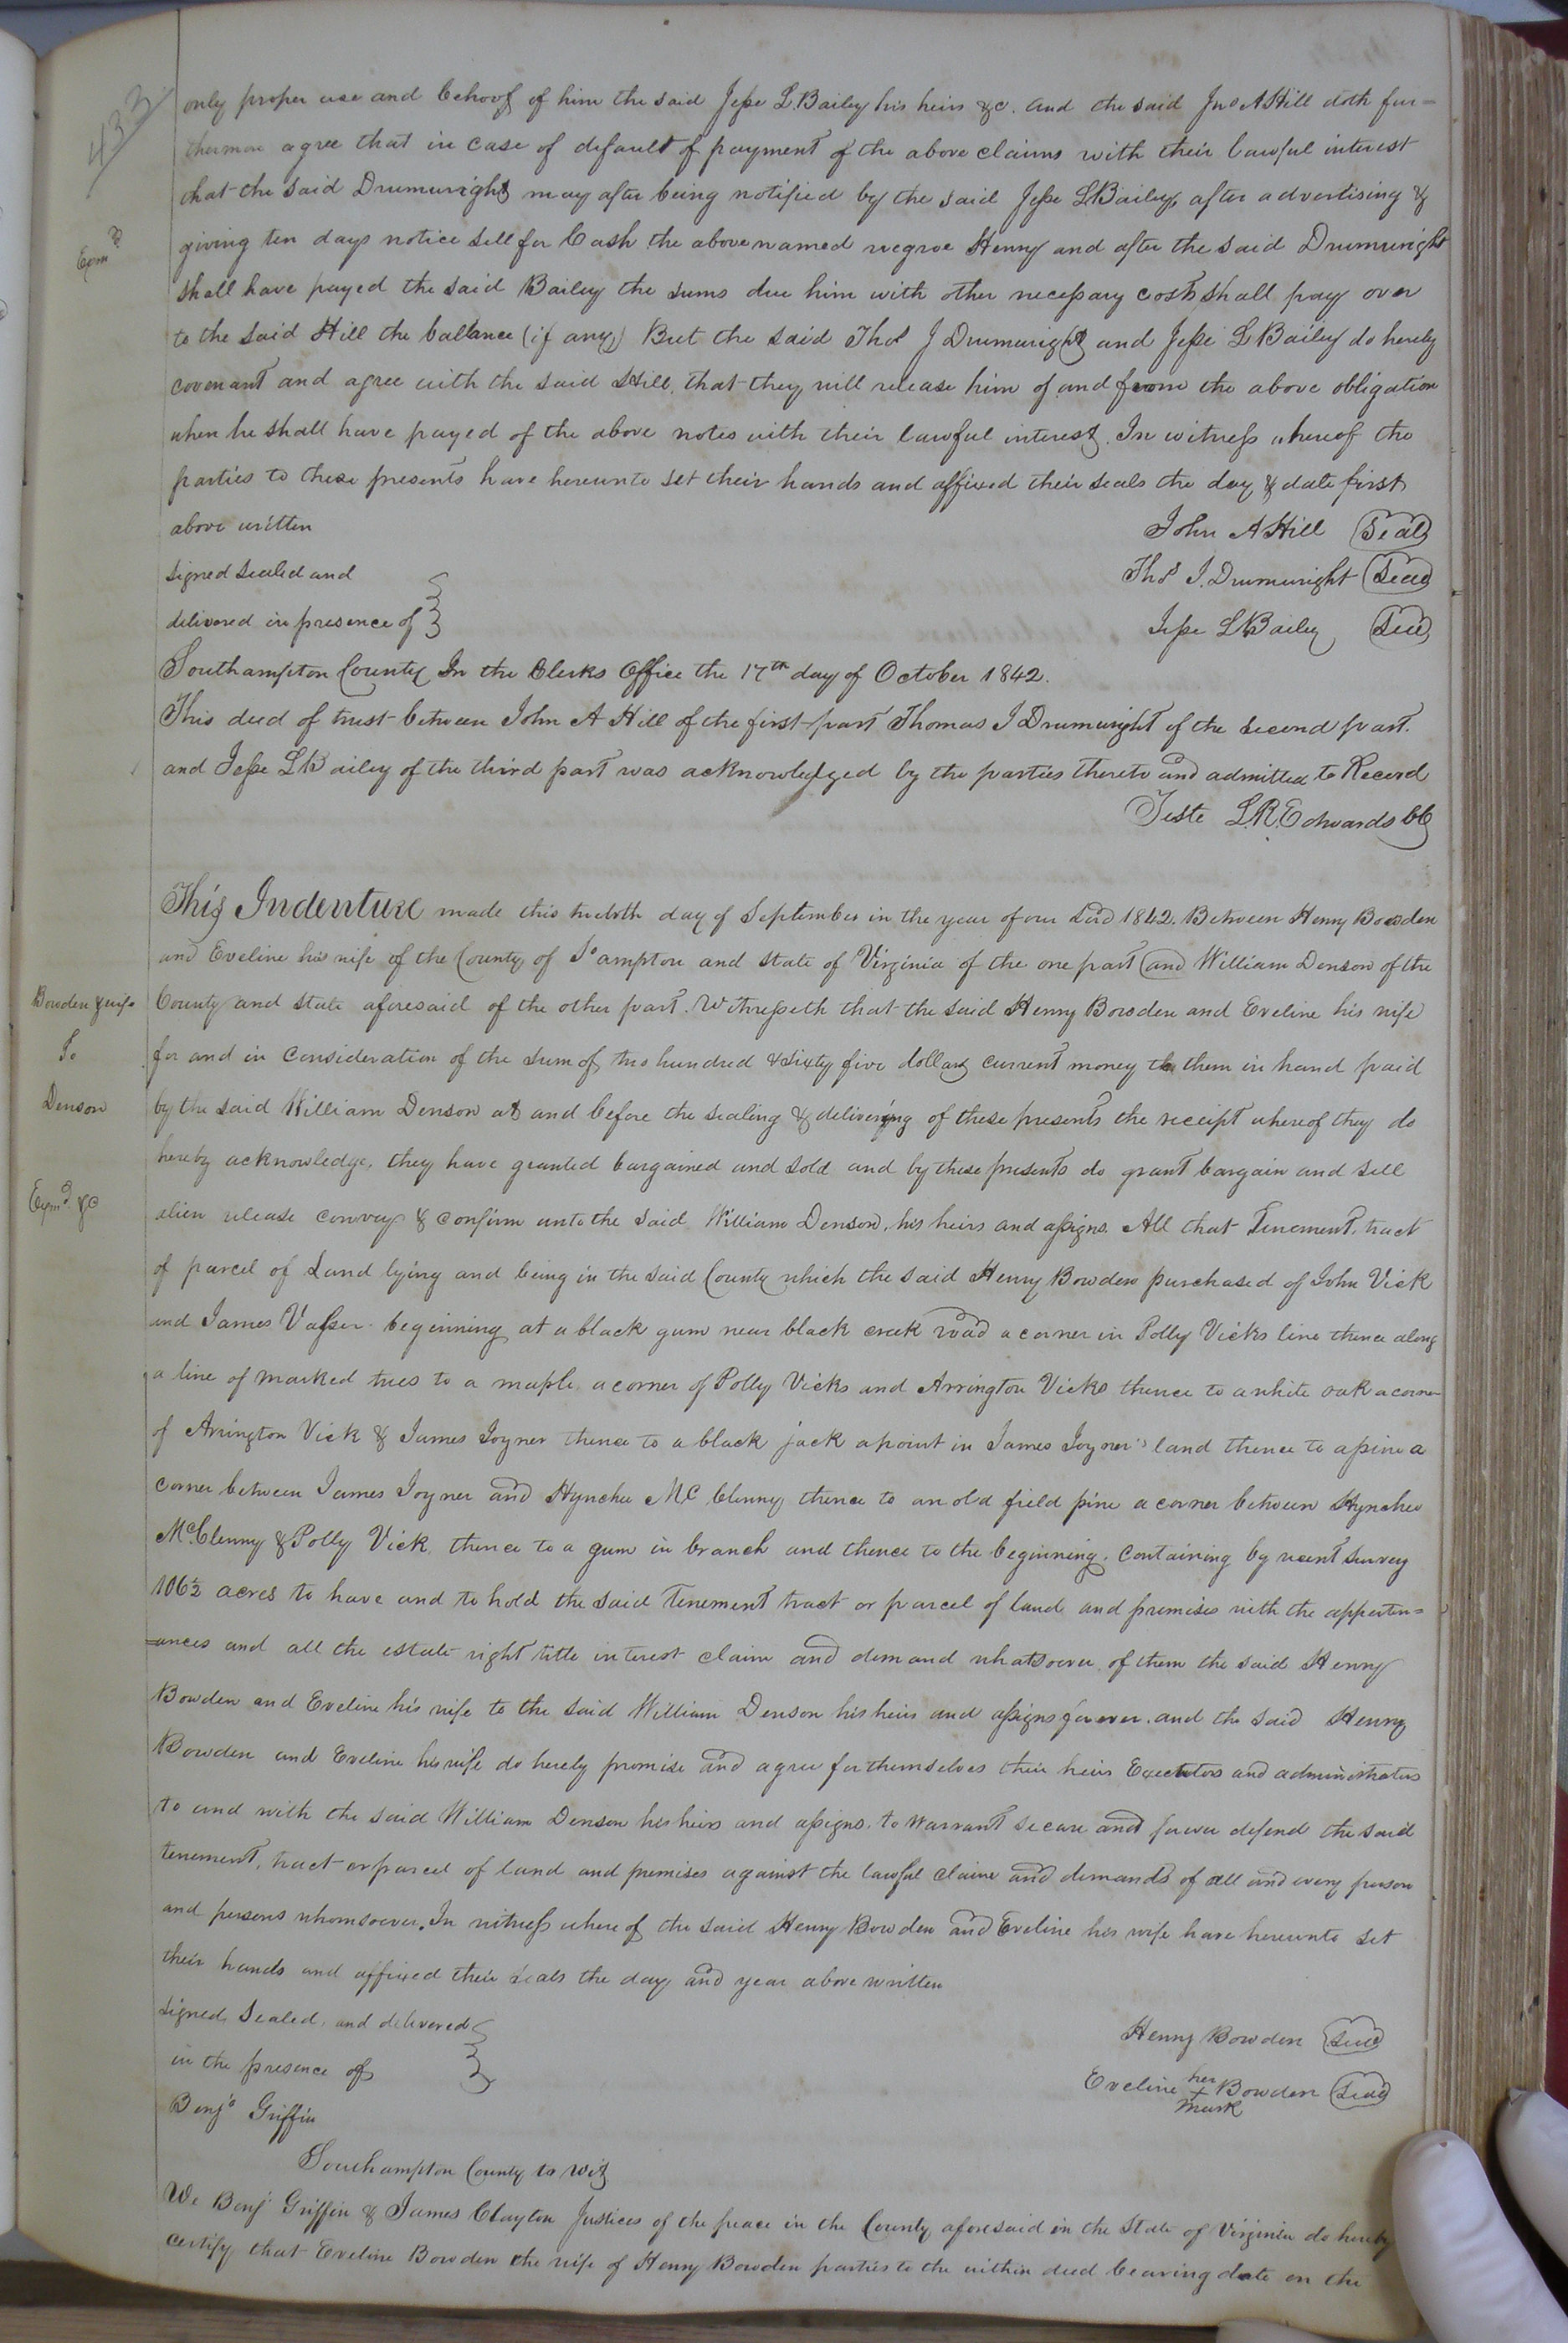 432
only proper use and behoof of him the said Jesse L. Bailey his heirs &c. and the said Jno A Hill doth fur=
thermore agree that in case of default of payment of the above claims with their lawful interest
that the said Drumwright may after being notified by the said Jesse L Bailey, after advertising &
Exmd
giving ten days notice sell for Cash the above named negroe Henny and after the said Drumwright
shall have payed the said Bailey the sums due him with other necessary costs shall pay over
to the said Hill the ballance (if any) But the said Thos J Drumwright and Jesse L Bailey do hereby
covenant and agree with the said Hill, that they will release him of and from the above obligation
when he shall have payed of the above notes with their lawful interest. In witness whereof the
parties to these presents have hereunto set their hands and affixed their seals the day & date first
above written
John A Hill (Seal)
signed sealed and
Thos J. Drumwright (Seal)
delivered in presence of
Jesse L Bailey (Seal)
Southampton County In the Clerks Office the 17th day of October 1842.
This deed of trust between John A Hill of the first part Thomas J Drumwright of the second part.
and Jesse L Bailey of the third part was acknowledged by the parties thereto and admitted to Record
Teste L.R. Edwards CC
This Indenture made this twelvth day of September in the year of our Lord 1842. Between Henry Bowden
and Eveline his wife of the County of So ampton and state of Virginia of the one part and William Denson of the
Bowden & wife
County and state aforesaid of the other part. Witnesseth that the said Henry Bowden and Eveline his wife
To
for and in consideration of the sum of two hundred & sixty five dollars current money to them in hand paid
Denson
by the said William Denson at and before the sealing & delivering of these presents the receipt whereof they do
hereby acknowledge, they have granted bargained and sold and by these presents do grant bargain and sell
Exmd &c
alien release convey & confirm unto the said William Denson, his heirs and assigns. All that Tenement, tract
of parcel of Land lying and being in the said County which the said Henry Bowden purchased of John Vick
and James Vasser. beginning at a black gum near black creek road a corner in Polly Vicks line thence along
a line of marked trees to a maple, a corner of Polly Vicks and Arrington Vicks thence to a white oak a corner
of Arrington Vick & James Joyner thence to a black jack a point in James Joyner's land thence to a pine a
corner between James Joyner and Hynchee Mc Clenny thence to an old field pine a corner between Hynchee
McClenny & Polly Vick, thence to a gum in branch and thence to the beginning. containing by recent survey
106½ acres to have and to hold the said Tenement tract or parcel of land and premises with the apperten=
=ances and all the estate right title interest claim and demand whatsoever of them the said Henry
Bowden and Eveline his wife to the said William Denson his heirs and assigns forever. and the said Henry
Bowden and Eveline his wife do herely promise and agree for themselves their heirs Executors and administrators
to and with the said William Denson his heirs and assigns, to Warrant secure and forever defend the said
tenement, tract or parcel of land and premises against the lawful claim and demands of all and every person
and persons whomsoever. In witness where of the said Henry Bowden and Eveline his wife have hereunto set
their hands and affixed their seals the day and year above written
signed, Sealed, and delivered
Henry Bowden (Seal)
in the presence of
Eveline her + mark Bowden (Seal)
Benja Griffin
Southampton County to Wit
We Benj Griffin & James Clayton Justices of the peace in the County aforesaid in the State of Virginia do hereby
certify that Eveline Bowden the wife of Henry Bowden parties to the within deed bearing date on the